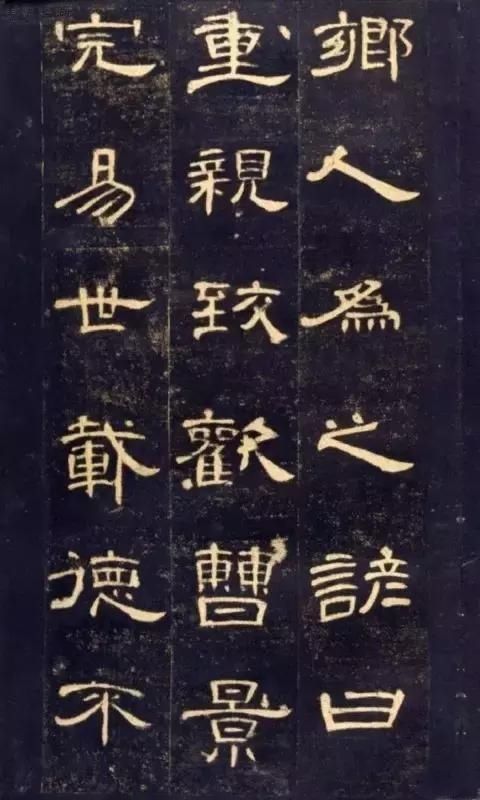 鄉人為之諺曰
重親致歡曹景
完易世載德不